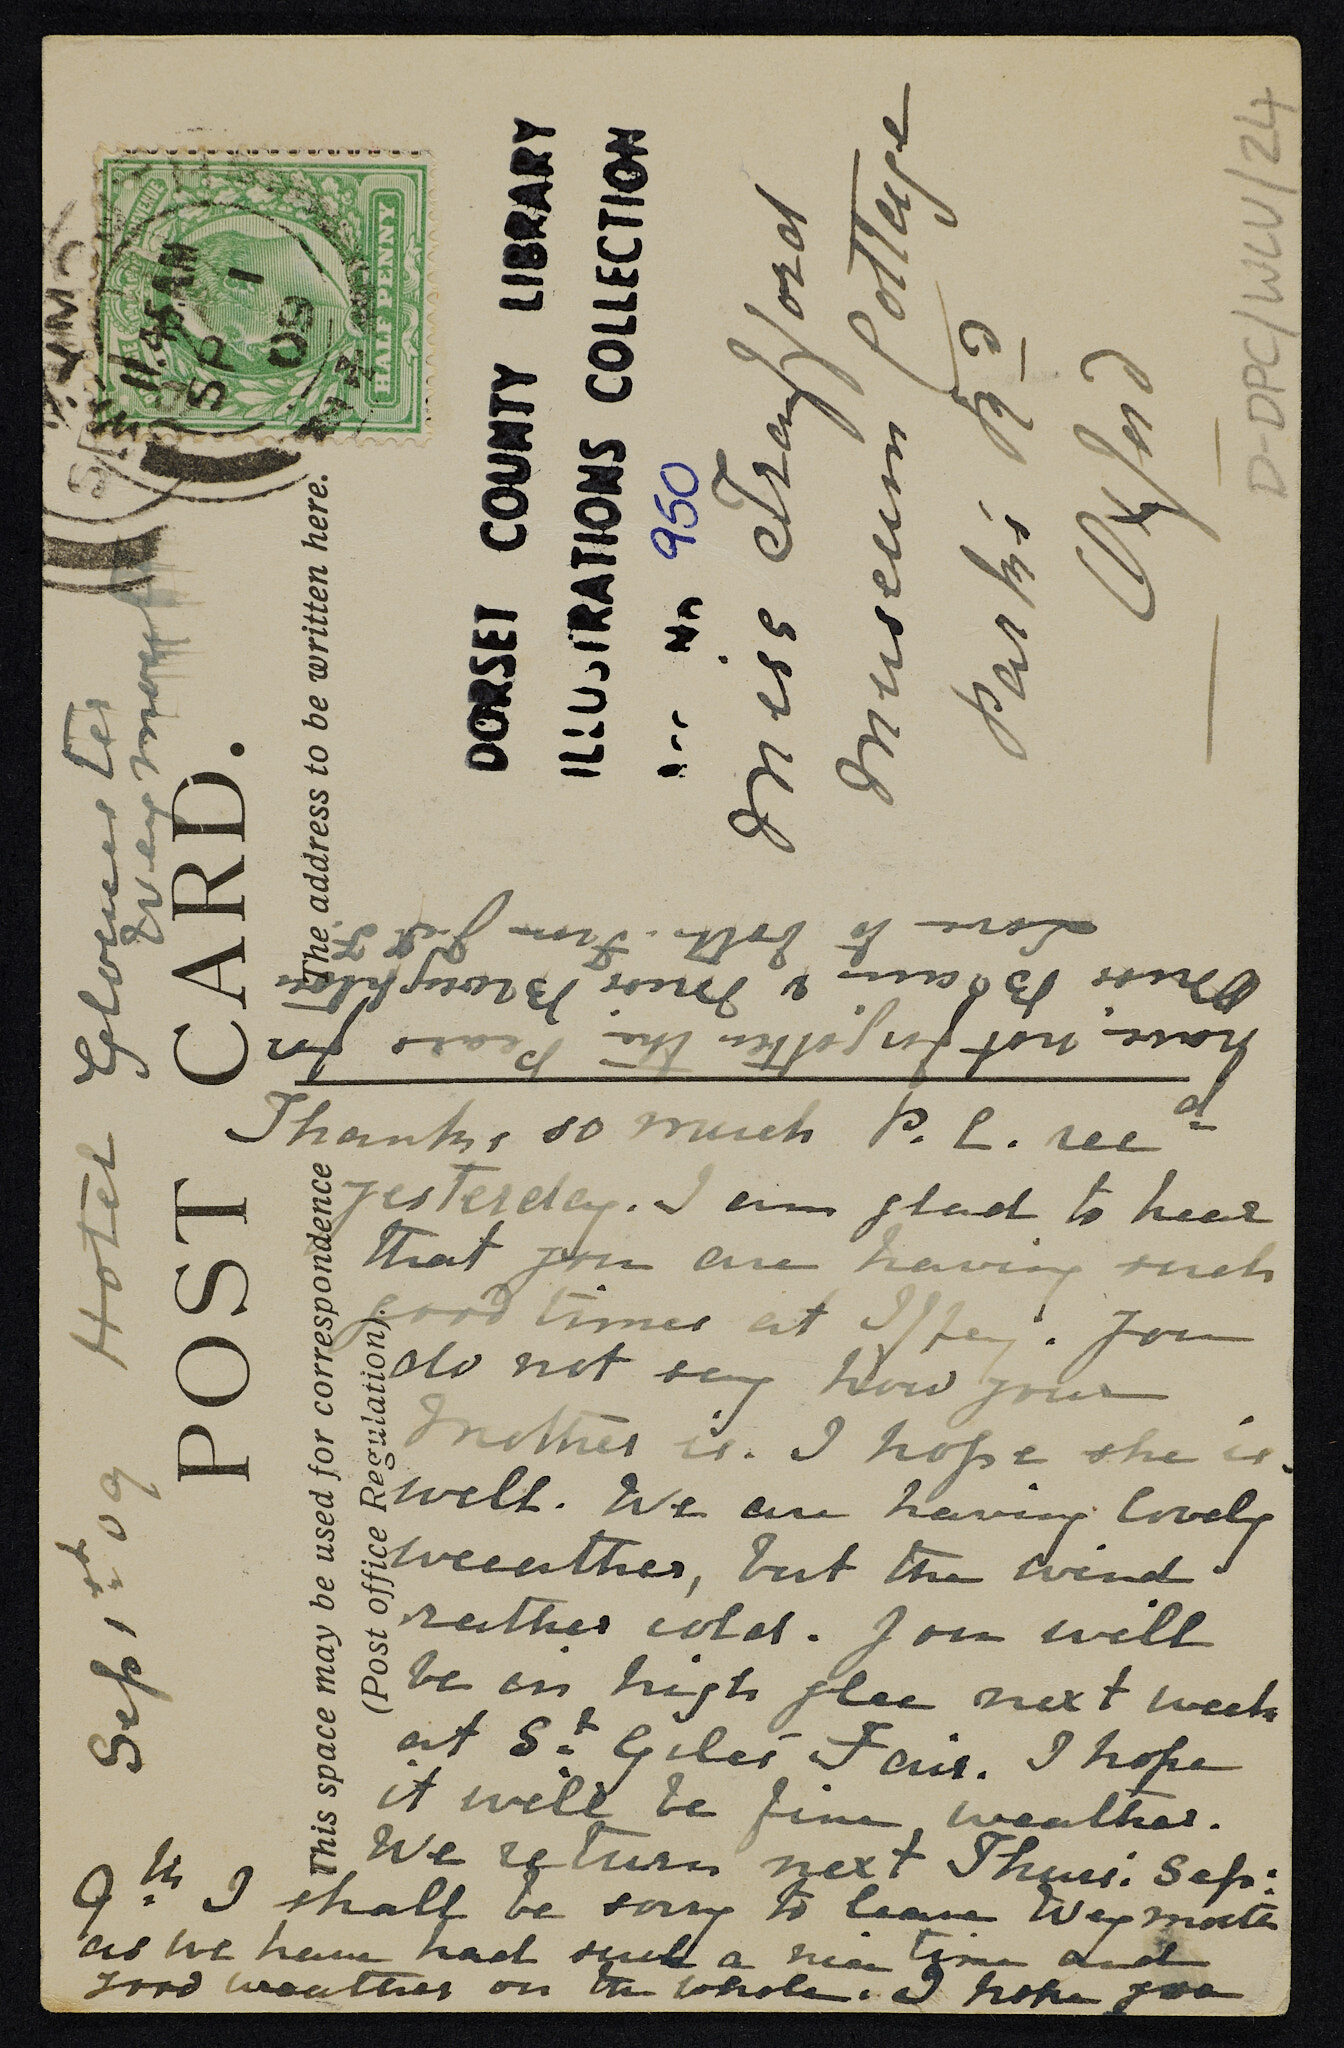 Sep 1st 09 Hotel Gloucester
Weymouth
POST CARD.
This space may be used for correspondence
(Post office Regulation).
The address to be written here.
HALF PENNY
11.45 AM
SP 1
09
DORSET COUNTY LIBRARY
ILLUSTRATIONS COLLECTION
Acc No 950
Miss Trafford
Museum Cottage
Parks Rd
Oxford
D-DPC/WLV/24
Thanks so much P.C. recd
yesterday. I am glad to hear
that you are having such
good times at Iffley. You
do not say how your
Mother is. I hope she is
well. We are having lovely
weather, but the wind
rather cold. You will
be in high glee next week
at St Giles Fair. I hope
it will be fine weather.
We return next Thurs. Sep:
9th I shall be sorry to leave Weymouth
as we have had such a nice time and
good weather on the whole. I hope you
have not forgotten the Pears for
Miss Blain & Miss Broughton
Love to both. From